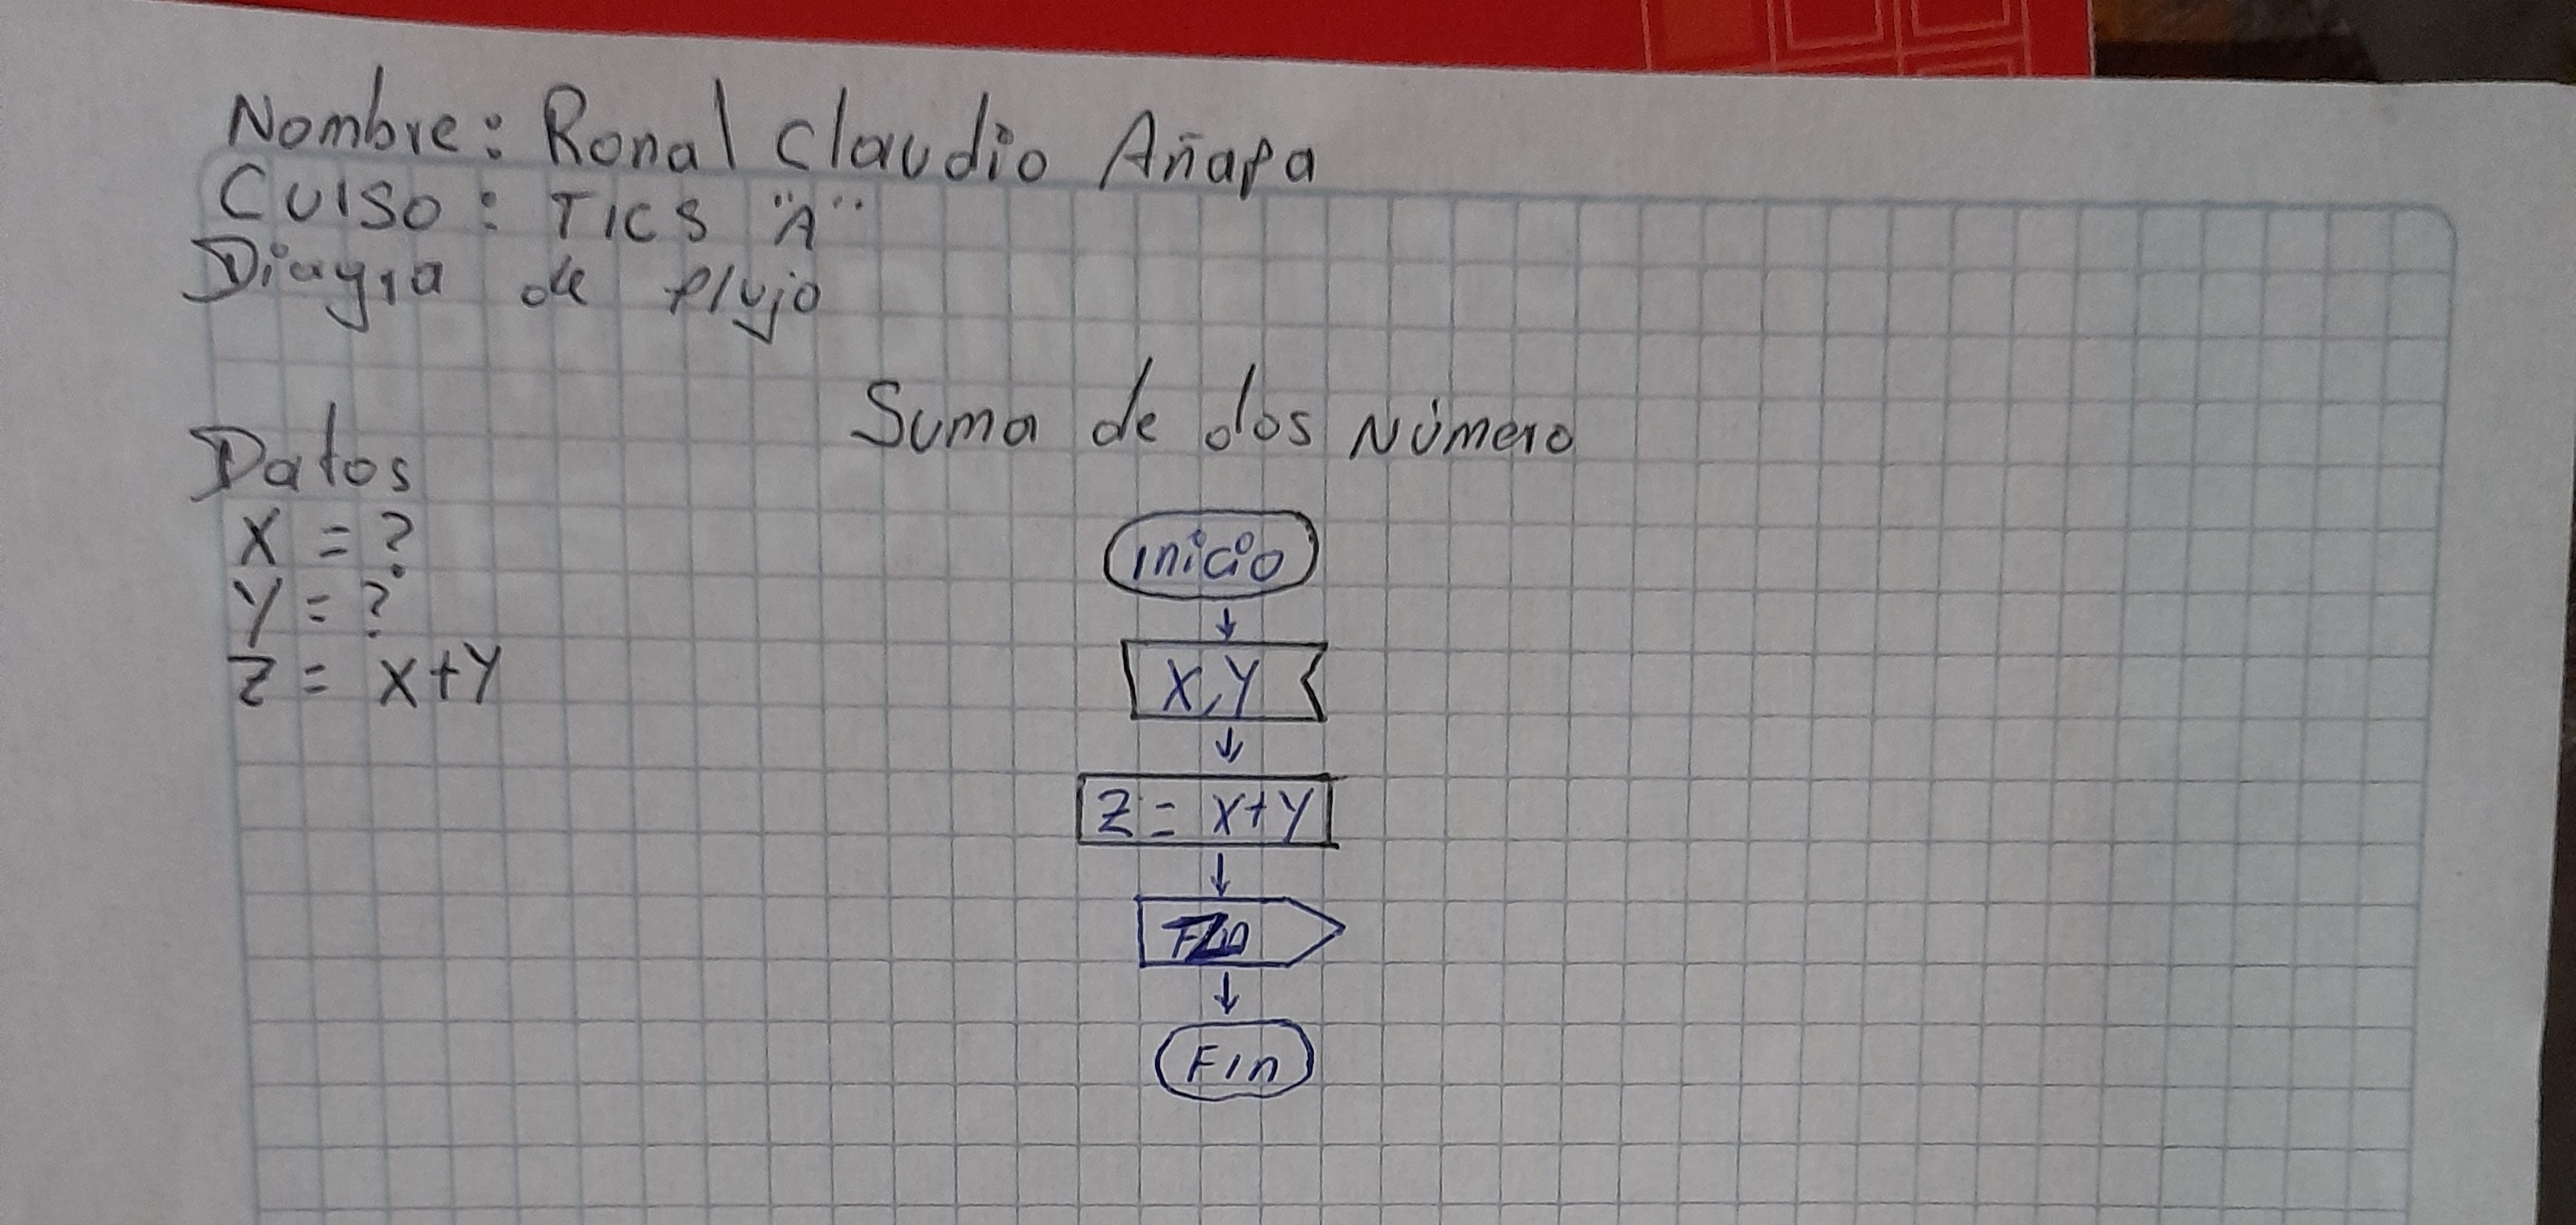 Nombre: Ronal Claudio Añapa
Curso: TICS "A"
Diagra de flujo
Suma de dos Número
Datos
X = ?
Y = ?
Z = X+Y
inicio
X, Y
Z = X+Y
Fin